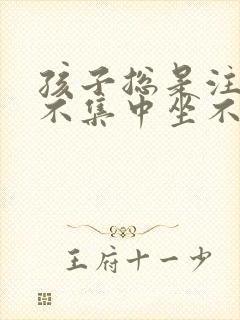 孩子总是注
不集中坐不
王府十一少